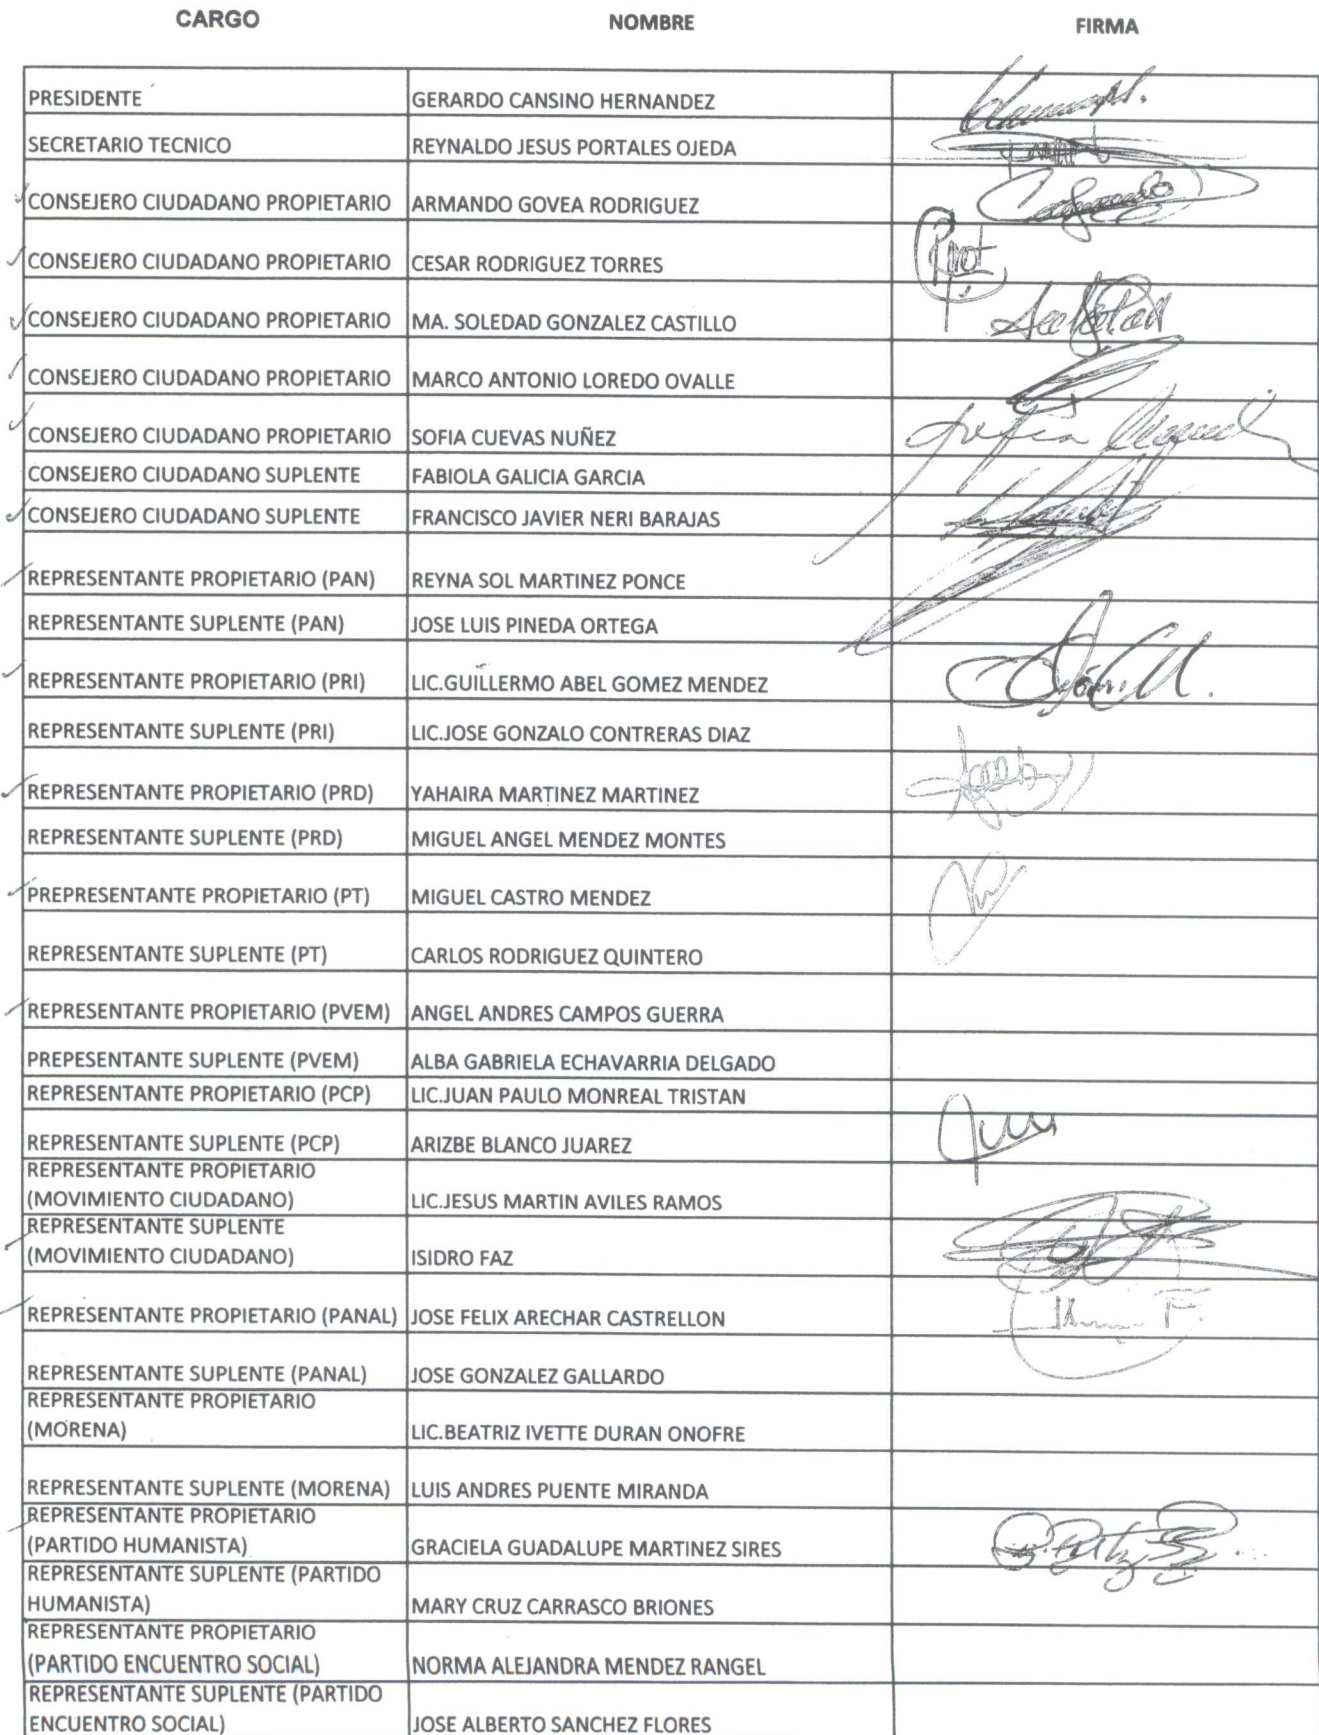 CARGO NOMBRE FIRMA
PRESIDENTE GERARDO CANSINO HERNANDEZ
SECRETARIO TECNICO REYNALDO JESUS PORTALES OJEDA
CONSEJERO CIUDADANO PROPIETARIO ARMANDO GOVEA RODRIGUEZ
CONSEJERO CIUDADANO PROPIETARIO CESAR RODRIGUEZ TORRES
CONSEJERO CIUDADANO PROPIETARIO MA. SOLEDAD GONZALEZ CASTILLO
CONSEJERO CIUDADANO PROPIETARIO MARCO ANTONIO LOREDO OVALLE
CONSEJERO CIUDADANO PROPIETARIO SOFIA CUEVAS NUÑEZ
CONSEJERO CIUDADANO SUPLENTE FABIOLA GALICIA GARCIA
CONSEJERO CIUDADANO SUPLENTE FRANCISCO JAVIER NERI BARAJAS
REPRESENTANTE PROPIETARIO (PAN) REYNA SOL MARTINEZ PONCE
REPRESENTANTE SUPLENTE (PAN) JOSE LUIS PINEDA ORTEGA
REPRESENTANTE PROPIETARIO (PRI) LIC.GUILLERMO ABEL GOMEZ MENDEZ
REPRESENTANTE SUPLENTE (PRI) LIC.JOSE GONZALO CONTRERAS DIAZ
REPRESENTANTE PROPIETARIO (PRD) YAHAIRA MARTINEZ MARTINEZ
REPRESENTANTE SUPLENTE (PRD) MIGUEL ANGEL MENDEZ MONTES
PREPRESENTANTE PROPIETARIO (PT) MIGUEL CASTRO MENDEZ
REPRESENTANTE SUPLENTE (PT) CARLOS RODRIGUEZ QUINTERO
REPRESENTANTE PROPIETARIO (PVEM) ANGEL ANDRES CAMPOS GUERRA
PREPESENTANTE SUPLENTE (PVEM) ALBA GABRIELA ECHAVARRIA DELGADO
REPRESENTANTE PROPIETARIO (PCP) LIC.JUAN PAULO MONREAL TRISTAN
REPRESENTANTE SUPLENTE (PCP) ARIZBE BLANCO JUAREZ
REPRESENTANTE PROPIETARIO
(MOVIMIENTO CIUDADANO) LIC.JESUS MARTIN AVILES RAMOS
REPRESENTANTE SUPLENTE
(MOVIMIENTO CIUDADANO) ISIDRO FAZ
REPRESENTANTE PROPIETARIO (PANAL) JOSE FELIX ARECHAR CASTRELLON
REPRESENTANTE SUPLENTE (PANAL) JOSE GONZALEZ GALLARDO
REPRESENTANTE PROPIETARIO
(MORENA) LIC.BEATRIZ IVETTE DURAN ONOFRE
REPRESENTANTE SUPLENTE (MORENA) LUIS ANDRES PUENTE MIRANDA
REPRESENTANTE PROPIETARIO
(PARTIDO HUMANISTA) GRACIELA GUADALUPE MARTINEZ SIRES
REPRESENTANTE SUPLENTE (PARTIDO
HUMANISTA) MARY CRUZ CARRASCO BRIONES
REPRESENTANTE PROPIETARIO
(PARTIDO ENCUENTRO SOCIAL) NORMA ALEJANDRA MENDEZ RANGEL
REPRESENTANTE SUPLENTE (PARTIDO
ENCUENTRO SOCIAL) JOSE ALBERTO SANCHEZ FLORES